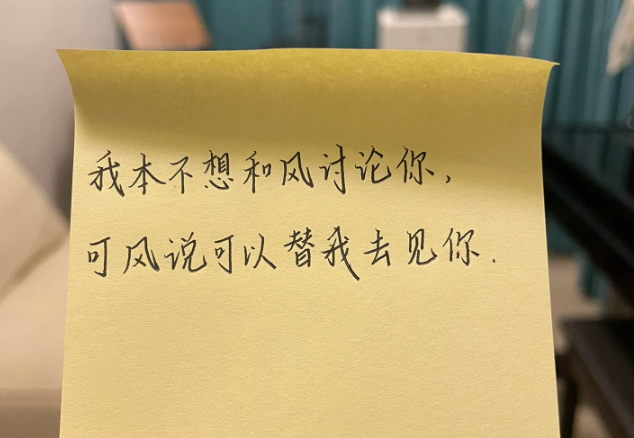 我本不想和风讨论你，
可风说可以替我去见你.